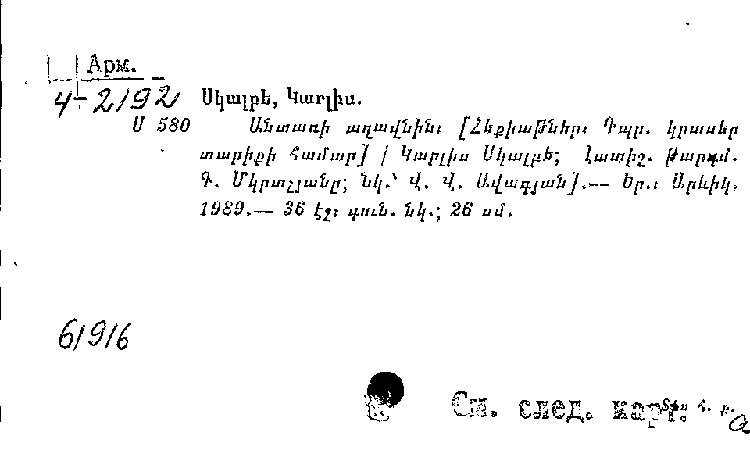 Арм.
4-2/92 Սկալբե, Կառլիս.
Ս 580 Անտառի աղավնին: [Հեքիաթներ: Դպր. կրտսեր
տարիքի համար] / Կառլիս Սկալբե; [Հատիշ. թարգմ.
Գ. Մկրտչյանը; նկ.՝ Վ. Վ. Ավագյան].— Եր.: Արևիկ,
1989.— 36 էջ: գուն. նկ.; 26 սմ.
6/9/6
См. след. карт.